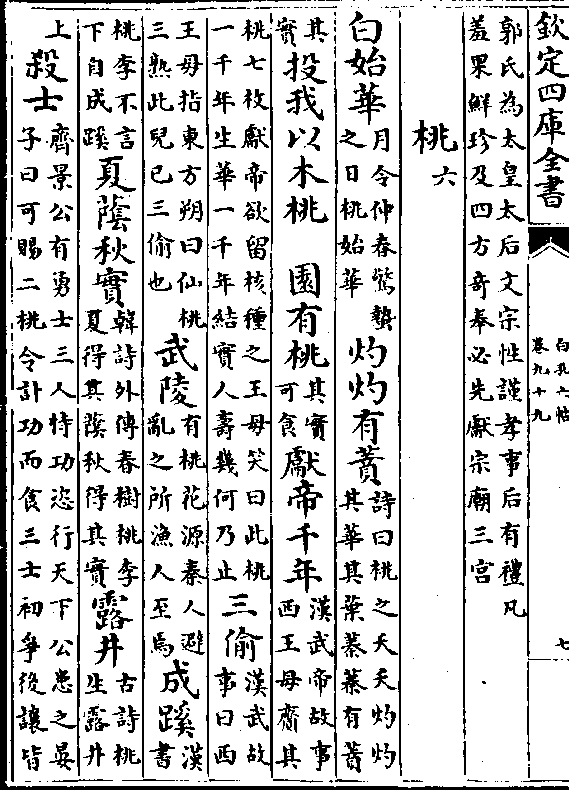 欽定四庫全書
白孔六帖
卷九十九
七
郭氏為太皇太后文宗性謹孝事后有禮凡
羞果鮮珍及四方奇奉必先獻宗廟三宮
桃六
白始華
月令仲春驚蟄
之日桃始華
灼灼有蕡
詩曰桃之夭夭灼灼
其華其葉蓁蓁有蕡
其
實
投我以木桃
園有桃
其實
可食
獻帝千年
漢武帝故事
西王母齎其
桃七枚獻帝欲留核種之王母笑曰此桃
一千年生華一千年結實人壽幾何乃止
三偷
漢武故
事曰西
王母指東方朔曰仙桃
三熟此兒已三偷也
武陵
有桃花源秦人避
亂之所漁人至焉
成蹊
漢
書
桃李不言
下自成蹊
夏蔭秋實
韓詩外傳春樹桃李
夏得其蔭秋得其實
露井
古詩桃
生露井
上
殺士
齊景公有勇士三人恃功恣行天下公患之晏
子曰可賜二桃令計功而食三士初爭後讓皆